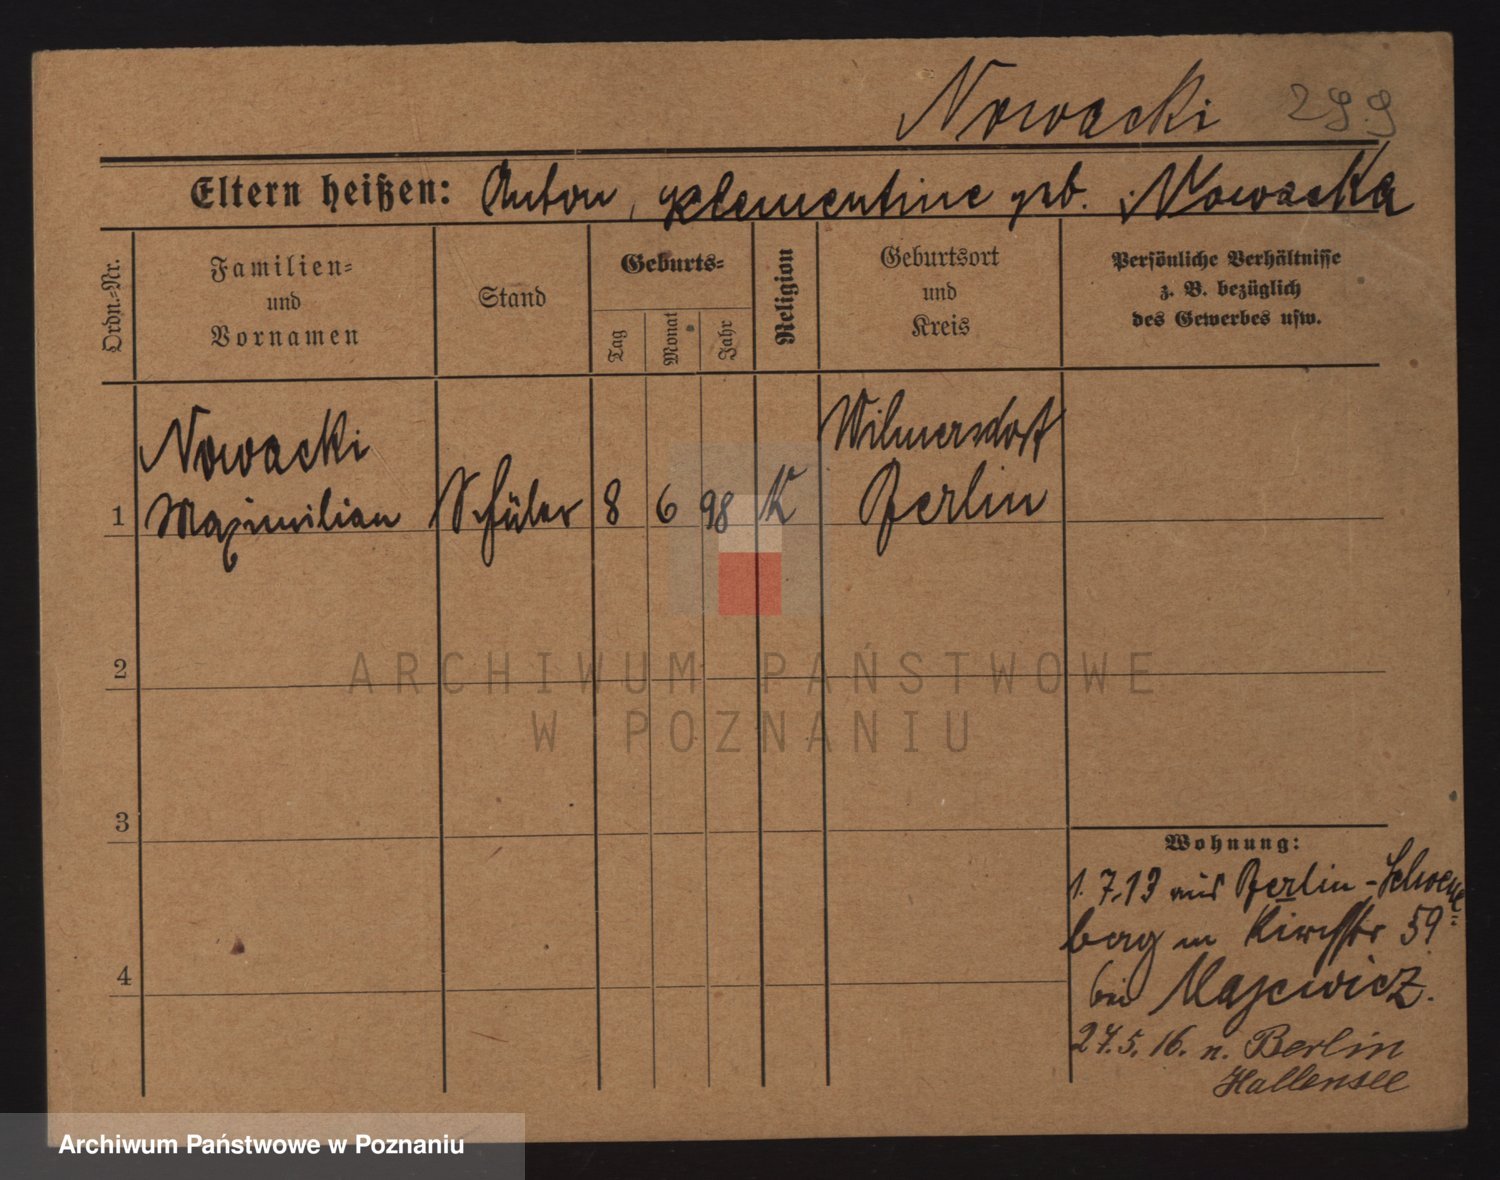 Nowacki 299
Eltern heißen: Anton, Klementine geb. Nowacka
Ordn.=Nr.
Familien=
und
Vornamen
Stand
Geburts=
Tag
Monat
Jahr
Religion
Geburtsort
und
Kreis
Persönliche Verhältnisse
z. B. bezüglich
des Gewerbes usw.
Nowacki
Maximilian
1
Schüler
8
6
98
K
Wilmersdorf
Berlin
2
3
4
Wohnung:
1.7.13 aus Berlin-Schoene=
berg n Kirchstr 59
bei Majewicz.
27.5.16. n. Berlin
Hallensee
ARCHIWUM PAŃSTWOWE
W POZNANIU
Archiwum Państwowe w Poznaniu